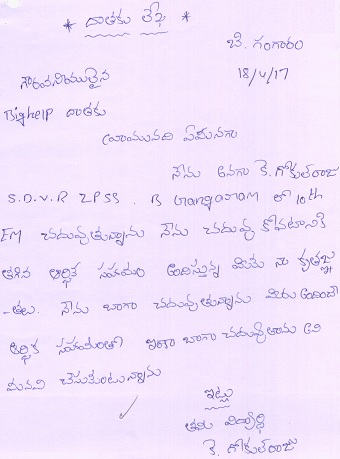 * దాతకు లేఖ *
బి. గంగారం
18/4/17
గౌరవనీయులైన
Bighelp దాతకు
వ్రాయునది ఏమనగా
నేను అనగా కె. గోకుల్ రాజు
S.D.V.R ZPSS. B Gangaram లో 10th
EM చదువుతున్నాను నేను చదువు కోవటానికి
తగిన ఆర్థిక సహాయం అందిస్తున్న మీకు నా కృతజ్ఞ
-తలు. నేను బాగా చదువుతున్నాను మీరు అందించే
ఆర్థిక సహాయంతో ఇంకా బాగా చదువుతాను అని
మనవి చేసుకుంటున్నాను
ఇట్లు
తమ విద్యార్థి
కె. గోకుల్ రాజు